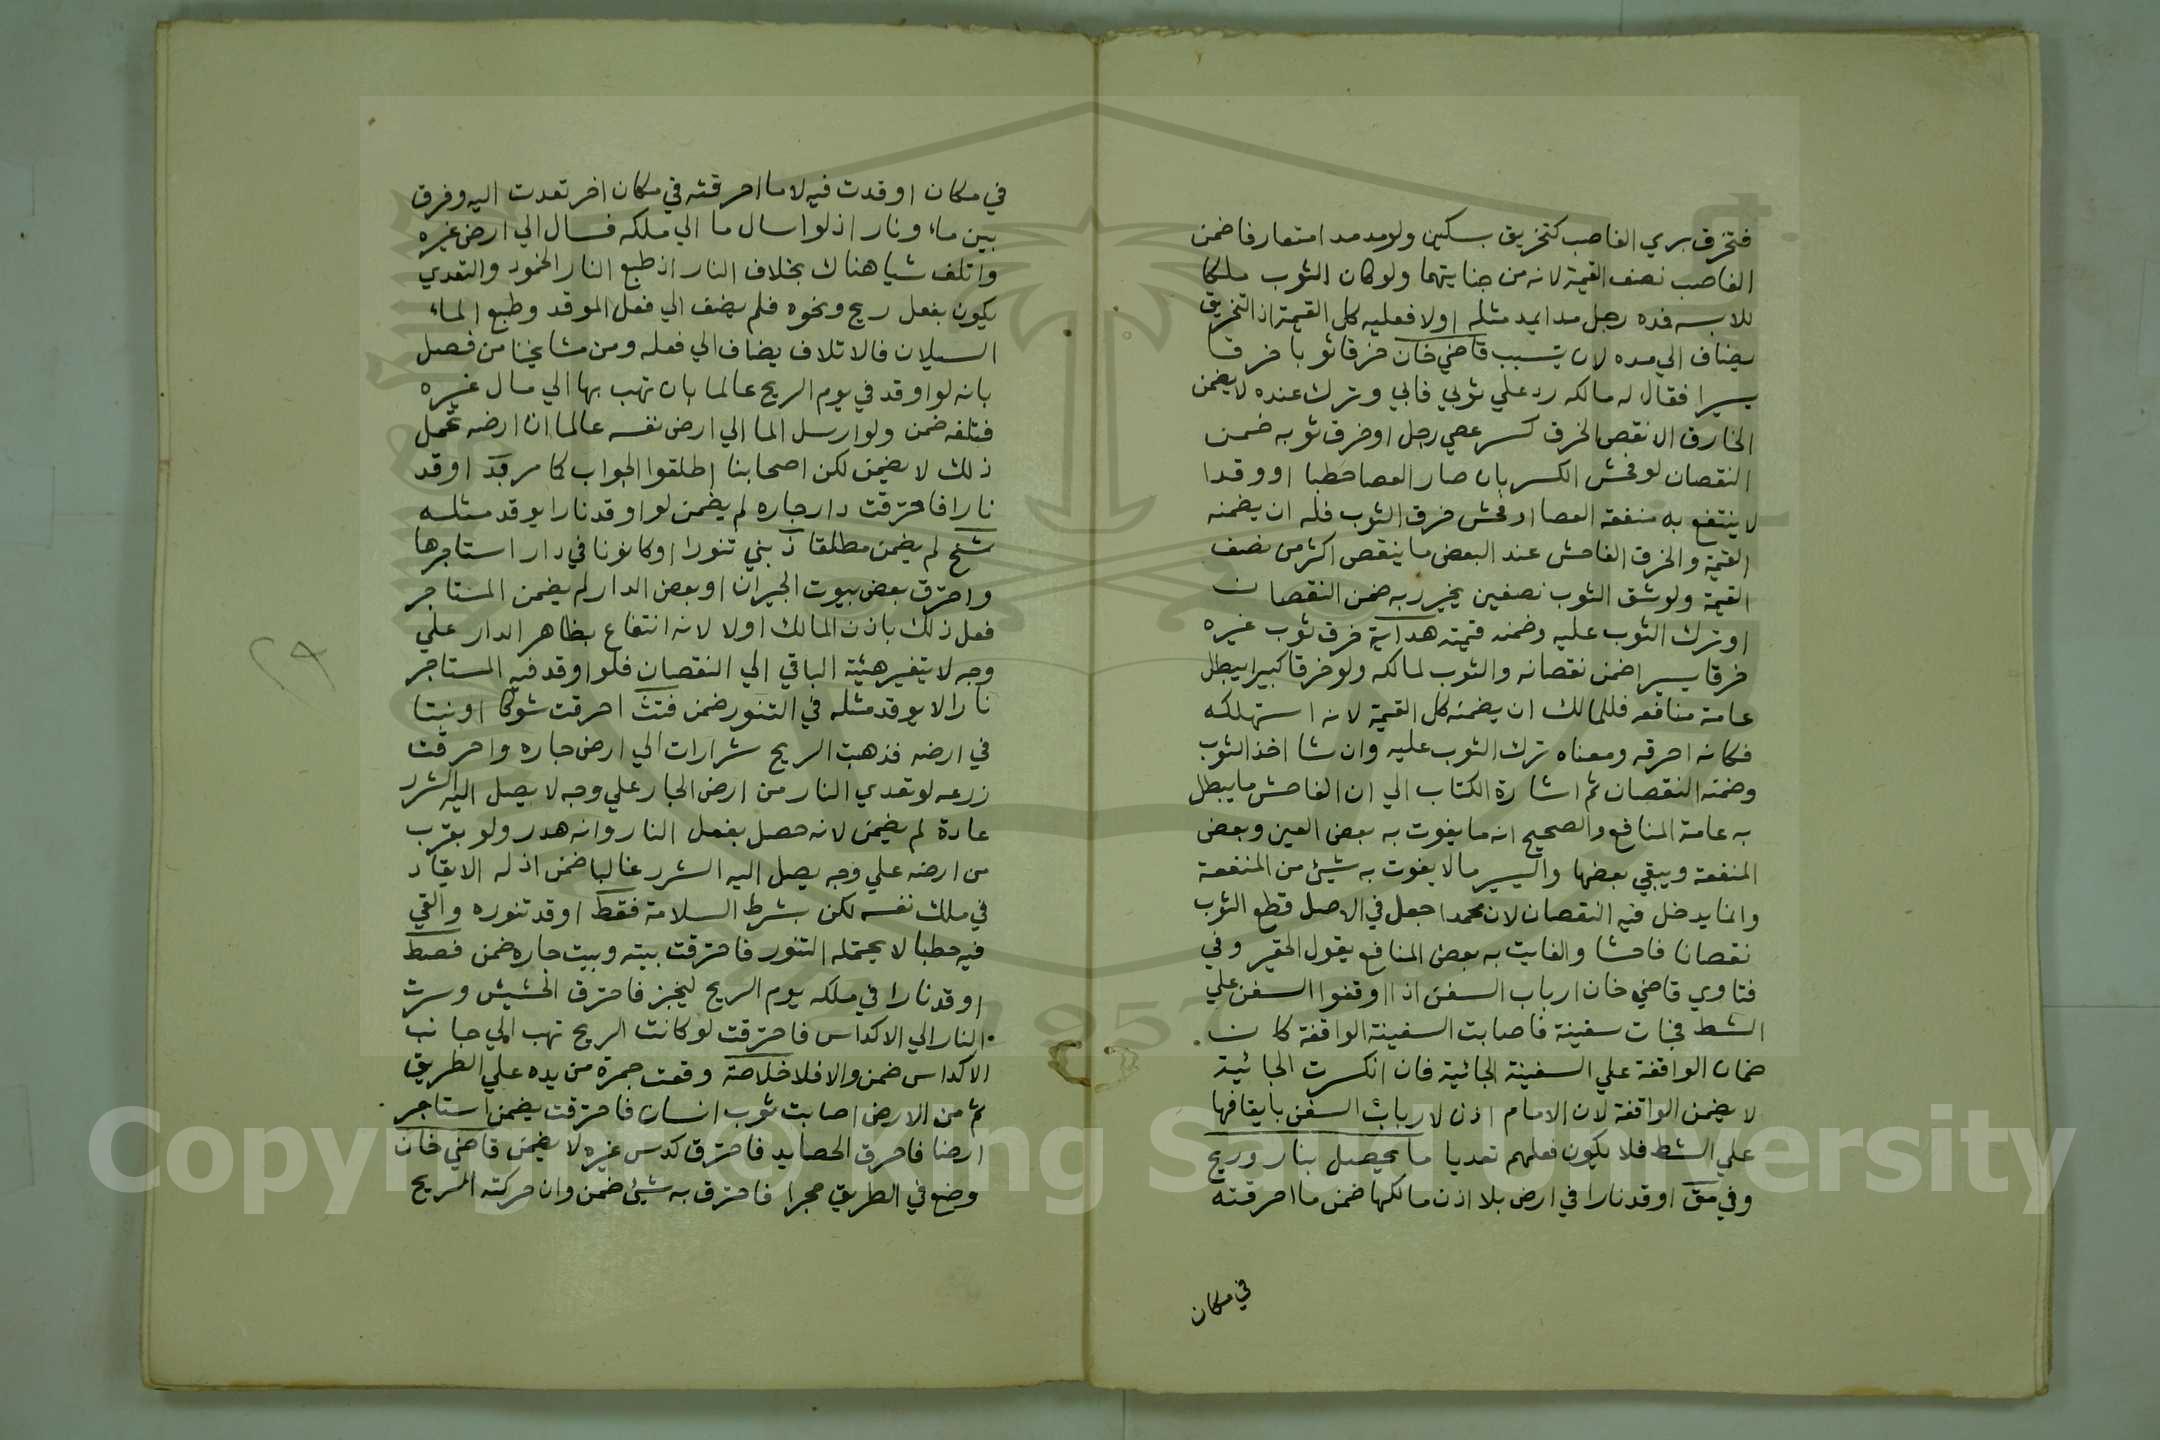 فتخرق بري الغاصب كتخريق بسكين ولو مد مدا متعارفا ضمن
الغاصب نصف القيمة لانه من جنايتهما ولو كان الثوب ملكا
للابسه فمده رجل مدا يمد مثله اولا فعليه كل القيمة اذ التخريق
يضاف الي مده لان يتسبب قاضي خان خرقا ثوبا خرقا
يسيرا فقال له مالكه رد علي ثوبي فابي وترك عنده لا يضمن
الخارق الا نقص الخرق كسر عصي رجل او خرق ثوبه ضمن
النقصان لو فحش الكسر بان صار العصا حطبا او وقدا
لا ينتفع به منفعة العصا او فحش خرق الثوب فله ان يضمنه
القيمة والخرق الفاحش عند البعض ما ينقص اكثر من نصف
القيمة ولو شق الثوب نصفين يخير ربه ضمن النقصان
او ترك الثوب عليه وضمنه قيمته هداية خرق ثوب غيره
خرقا يسيرا ضمن نقصانه والثوب لمالكه ولو خرقا كبيرا يبطل
عامة منافعه فللمالك ان يضمنه كل القيمة لانه استهلكه
فكانه احرقه ومعناه ترك الثوب عليه وان شا اخذ الثوب
وضمنه النقصان ثم اشارة الكتاب الي ان الفاحش ما يبطل
به عامة المنافع والصحيح انه ما يفوت به بعض العين وبعض
المنفعة ويبقي بعضها واليسير ما لا يفوت به شيئ من المنفعة
وانما يدخل فيه النقصان لان محمدا جعل في الاصل قطع الثوب
نقصانا فاحشا والفايت به بعض المنافع يقول الحقير وفي
فتاوي قاضي خان ارباب السفن اذا اوقفوا السفن علي
الشط فجات سفينة فاصابت السفينة الواقفة كان
ضمان الواقفة علي السفينة الجائية فان انكسرت الجائية
لا يضمن الواقفة لان الامام اذن لارباب السفن بايقافها
علي الشط فلا يكون فعلهم تعديا ما يحصل بنار وريح
وفي مق اوقد نارا في ارض بلا اذن مالكها ضمن ما احرقته
في مكان
في مكان اوقدت فيه لا ما احرقته في مكان اخر تعدت اليه وفرق
بين ماء ونار اذ لو اسال ما الي ملكه فسال الي ارض غيره
واتلف شيا هناك بخلاف النار اذ طبع النار الخمود والتعدي
يكون بفعل ريح ونحوه فلم يضف الي فعل الموقد وطبع الماء
السيلان فالاتلاف يضاف الي فعله ومن مشايخنا من فصل
بانه لو اوقد في يوم الريح عالما بان تهب بها الي مال غيره
فتلفه ضمن ولو ارسل الما الي ارض نفسه عالما ان ارضه تحمل
ذلك لا يضمن لكن اصحابنا اطلقوا الجواب كما مر فد اوقد
نارا فاحترقت دار جاره لم يضمن لو اوقد نارا يوقد مثله
شخ لم يضمن مطلقا ذ بني تنورا او كانونا في دار استاجرها
واحترق بعض بيوت الجيران او بعض الدار لم يضمن المستاجر
فعل ذلك باذن المالك اولا لانه انتفاع بظاهر الدار علي
وجه لا يتغير هيئة الباقي الي النقصان فلو اوقد فيه المستاجر
نارا لا يوقد مثله في التنور ضمن فتث احرقت شوكا او نبتا
في ارضه فذهبت الريح شرارات الي ارض جاره واحرقت
زرعه لو تعدي النار من ارض الجار علي وجه لا يصل اليه الشرر
عادة لم يضمن لانه حصل بفعل النار وانه هدر ولو بقرب
من ارضه علي وجه يصل اليه الشرر غالبا ضمن اذ له الايقاد
في ملك نفسه لكن بشرط السلامة فقظ اوقد تنوره والقي
فيه حطبا لا يحتمله التنور فاحترقت بيته وبيت جاره ضمن فصط
اوقد نارا في ملكه يوم الريح ليخبز فاحترق الحشيش وسرت
النار الي الاكداس فاحترقت لو كانت الريح تهب الي جانب
الاكداس ضمن والا فلا خلاصة وقعت جمرة من يده علي الطريق
ثم من الارض اصابت ثوب انسان فاحترقت يضمن استاجر
ارضا فاحرق الحصايد فاحترق كدس غيره لا يضمن قاضي خان
وضع في الطريق جمرا فاحترق به شيئ ضمن وان حركته الريح
٢٩
Copyright © King Saud University
1957